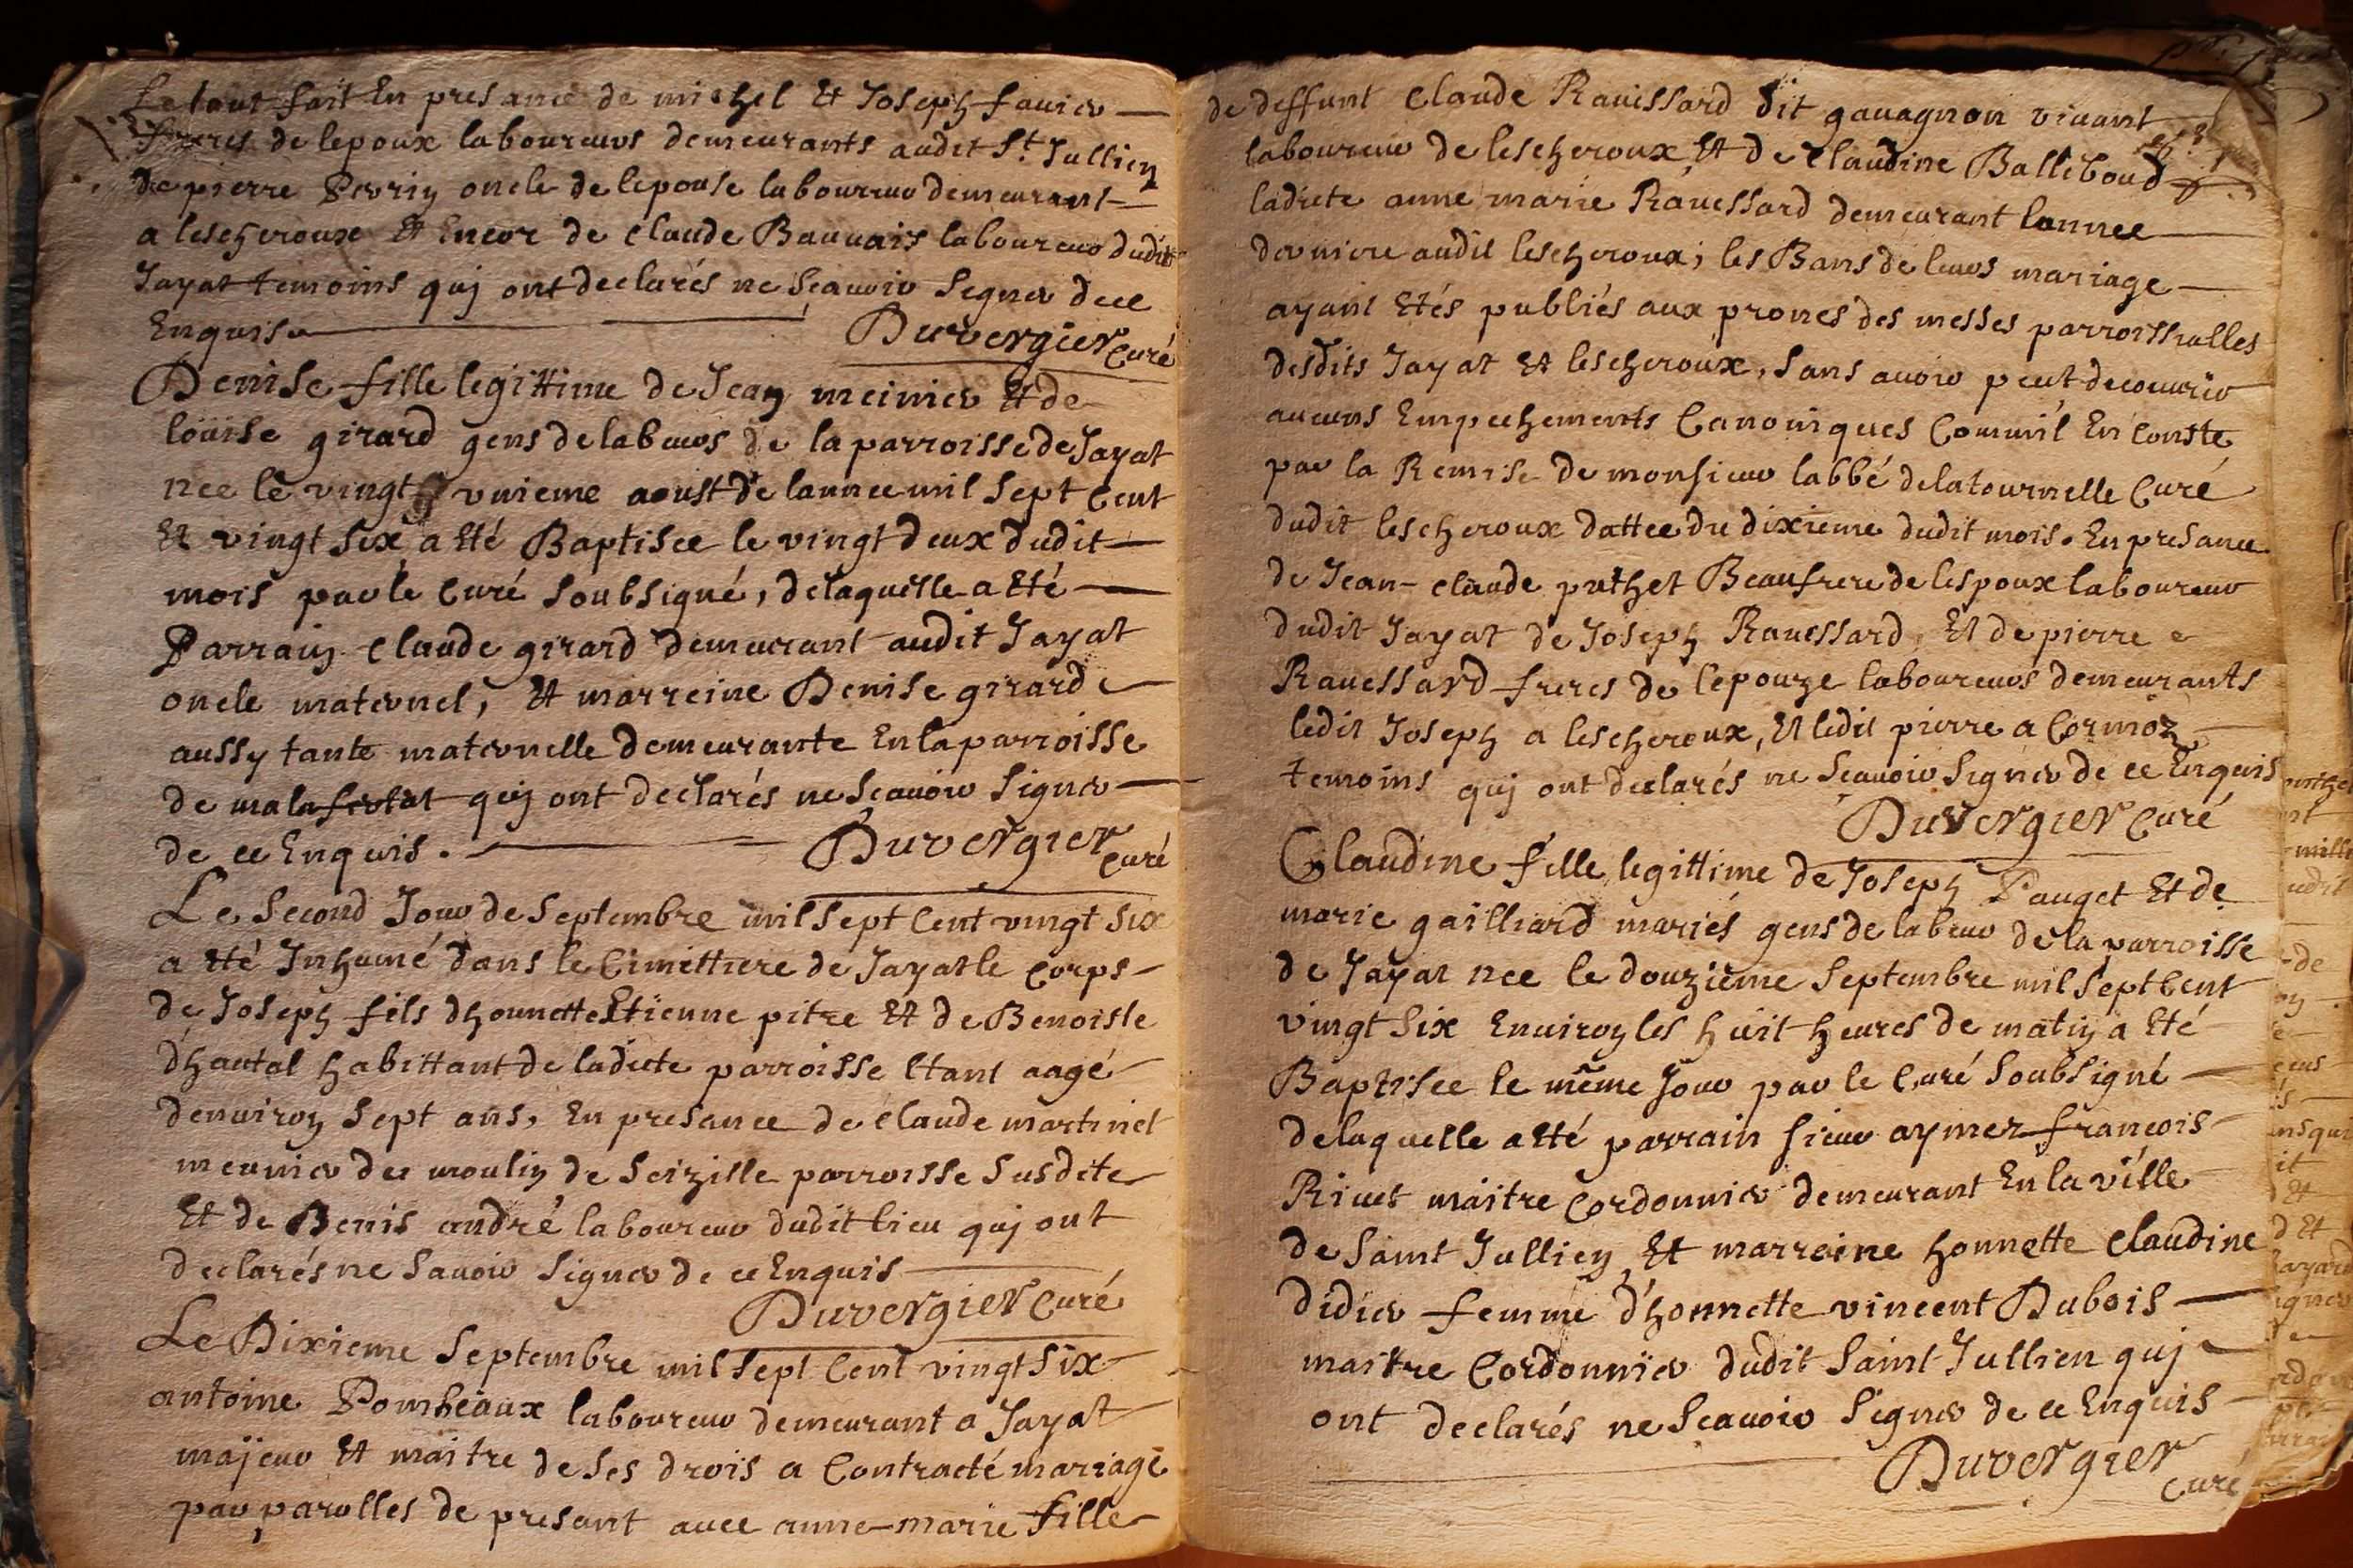 Le tout fait En presance de michel Et Joseph favier
freres de lepoux laboureurs demeurants audit St. Jullien
de pierre Perrin oncle de lepouse laboureur demeurant
a lescheroux Et Encor de Claude Bauvais laboureur dudit
Jayat temoins quj ont declarés ne Scauoir Signer de ce
Enquis
Duvergier Curé
Denise fille legittime de Jean meinier Et de
loüise girard gens de labeurs de la parroisse de Jayat
nee le vingt vnieme aoust de lannee mil Sept Cent
Et vingt Six a Eté Baptisee le vingt deux dudit
mois par le Curé Soubsigné, delaquelle a Eté
Parrain Claude girard demeurant audit Jayat
oncle maternel, Et marreine Denise girard
aussy tante maternelle demeurante En la parroisse
de malafretat quj ont declarés ne Scauoir Signer
de ce Enquis.
Duvergier Curé
Le Second Jour de Septembre mil Sept Cent vingt Six
a Eté Inhumé dans le Cimittiere de Jayat le Corps
de Joseph fils dhonnette Etienne pitre Et de Benoiste
dhautal habittant de ladicte parroisse Etant aagé
denuiron Sept ans, En presance de Claude martinet
meunier du moulin de Seizille parroisse Susdite
Et de Denis andré laboureur dudit lieu quj ont
declarés ne Sauoir Signer de ce Enquis
Duvergier Curé
Le Dixieme Septembre mil Sept Cent vingt Six
antoine Pombeaux laboureur demeurant a Jayat
majeur Et maitre de Ses drois a Contracté mariage
par parolles de presant auec anne-marie fille
de deffunt Claude Rauessard dit gauagnon viuant
laboureur de lescheroux Et de Claudine Balleboud
ladicte anne marie Rauessard demeurant lannee
derniere audit lescheroux; les Bans de leurs mariage
ayant Etés publiés aux prones des messes parroissialles
desdits Jayat Et lescheroux, Sans auoir peut decouurir
aucuns Empechements Canoniques Commil En Conste
par la Remise de monsieur labbé delatournelle Curé
dudit lescheroux dattee du dixieme dudit mois. En presance
de Jean-claude puthet Beaufrere de lespoux laboureur
dudit Jayat de Joseph Rauessard, Et de pierre
Rauessard freres de lepouze laboureurs demeurants
ledit Joseph a lescheroux, Et ledit pierre a Cormoz
temoins quj ont declarés ne Scauoir Signer de ce Enquis
Duvergier Curé
Claudine fille legittime de Joseph Pauget Et de
marie gailliard mariés gens de labeur de la parroisse
de Jayat nee le douzieme Septembre mil Sept Cent
vingt Six Enuiron les huit heures de matin a Eté
Baptisee le même Jour par le Curé Soubsigné
delaquelle a Eté parrain Sieur aymez francois
Riuet maitre Cordonnier demeurant En la ville
de Saint Jullien Et marreine honnette Claudine
didier femme d'honnette vincent Dubois
maitre Cordonnier dudit Saint Jullien quj
ont declarés ne Scauoir Signer de ce Enquis
Duvergier
Curé